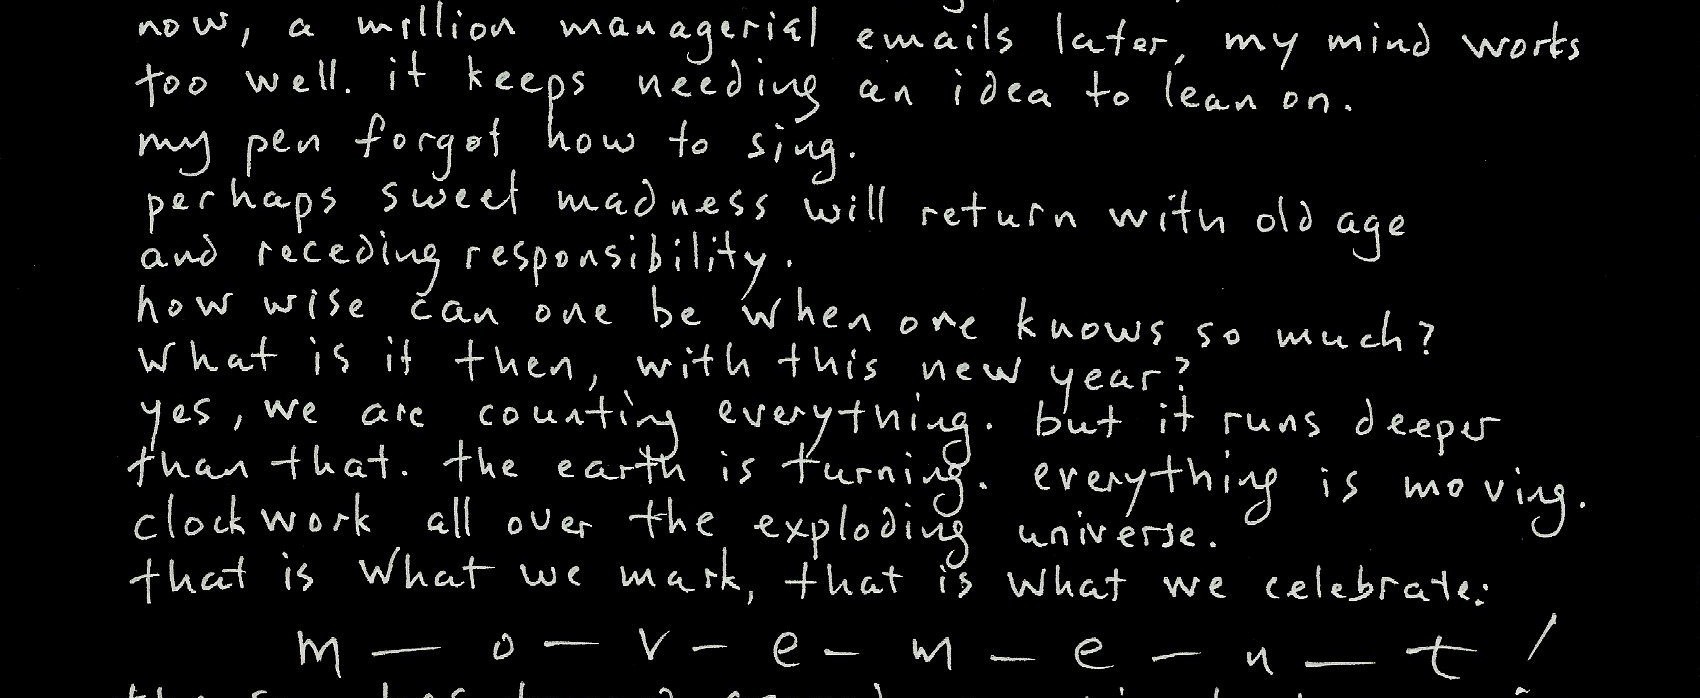 now, a million managerial emails later, my mind works
too well. it keeps needing an idea to lean on.
my pen forgot how to sing.
perhaps sweet madness will return with old age
and receding responsibility.
how wise can one be when one knows so much?
What is it then, with this new year?
yes, we are counting everything. but it runs deeper
than that. the earth is turning. everything is moving.
clockwork all over the exploding universe.
that is what we mark, that is what we celebrate:
m — o — v — e — m — e — n — t !